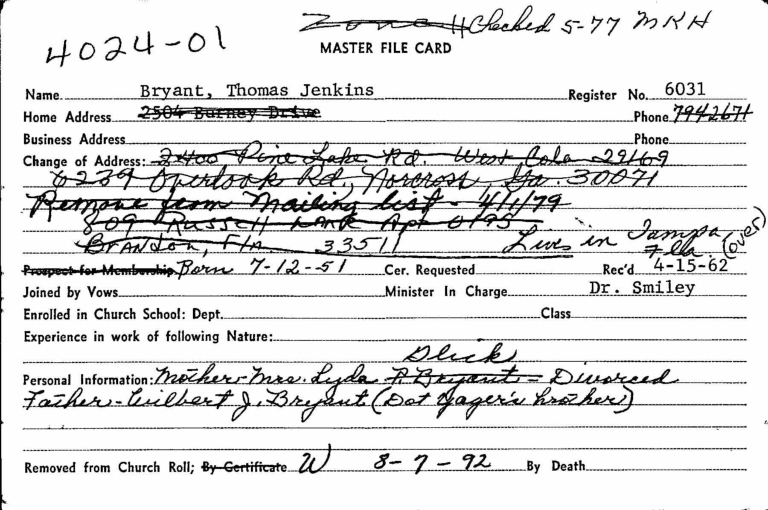 4024-01 Zone 11 Checked 5-77 MKH
MASTER FILE CARD
Name Bryant, Thomas Jenkins Register No. 6031
Home Address 2504 Burney Drive Phone 7942671
Business Address Phone
Change of Address: 2400 Pine Lake Rd. West Cola 29169
6239 Overlook Rd., Norcross, Ga. 30071
Remove from Mailing list - 4/1/79
809 Russell Lane Apt
Brandon, Fla 33511 Lives in Tampa Fla. (over)
Prospect for Membership Born 7-12-51 Cer. Requested Rec'd 4-15-62
Joined by Vows Minister In Charge Dr. Smiley
Enrolled in Church School: Dept. Class
Experience in work of following Nature:
Slick
Personal Information: Mother-Mrs. Lyda P. Bryant - Divorced
Father-Wilbert J. Bryant (Dot Yager's brother)
Removed from Church Roll; By Certificate W 8-7-92 By Death